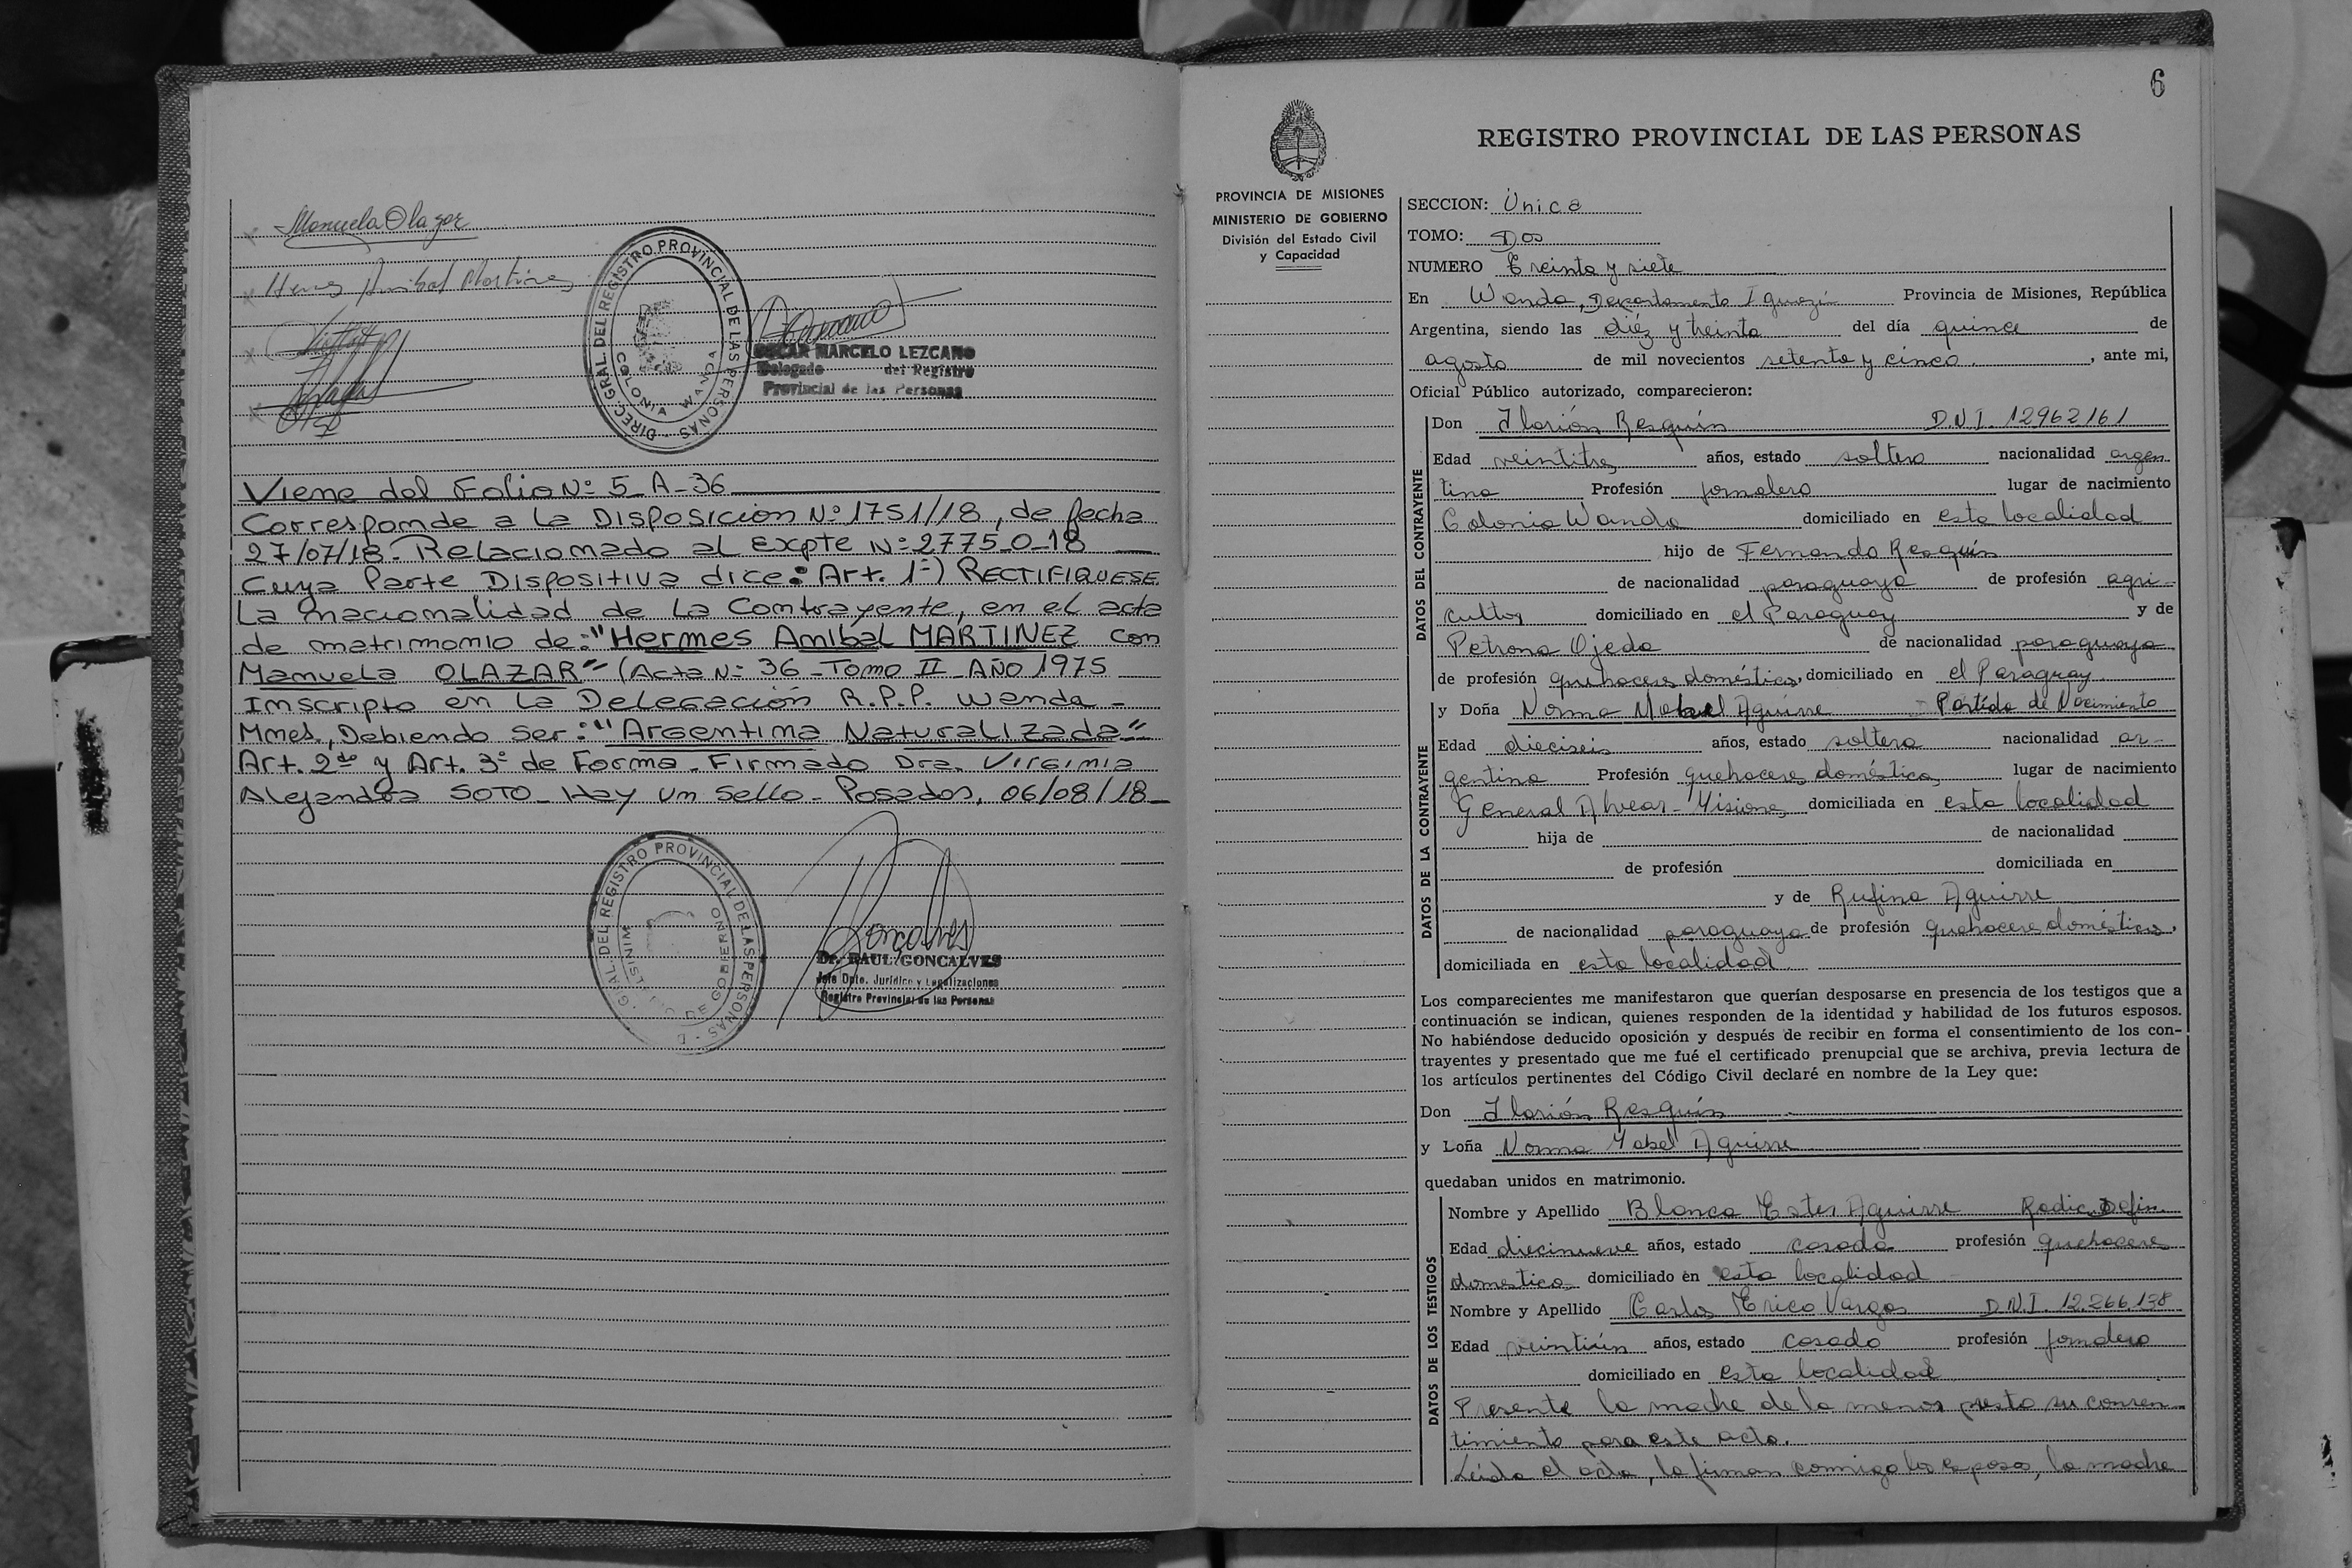 Manuela Olazar
Hermes Anibal Martinez
DIREC. GRAL. DEL REGISTRO PROVINCIAL DE LAS PERSONAS
COLONIA WANDA
OSCAR MARCELO LEZCANO
Delegado del Registro
Provincial de las Personas
Viene del Folio Nº 5_A_36
Corresponde a la Disposicion Nº 1751/18, de fecha
27/07/18. Relacionado al Expte Nº 2775_O_18
Cuya Parte Dispositiva dice: Art. 1º) RECTIFIQUESE
La nacionalidad de La Contrayente, en el acta
de matrimonio de: "Hermes Anibal MARTINEZ con
Manuela OLAZAR" (Acta Nº 36 _ Tomo II _ AÑO 1975
Inscripto en la Delegación R.P.P. Wanda -
Mnes., Debiendo ser: "Argentina Naturalizada"
Art. 2do y Art. 3º de Forma. Firmado Dra. Virginia
Alejandra SOTO _ Hay un sello. Posadas, 06/08/18_
GRAL. DEL REGISTRO PROVINCIAL DE LAS PERSONAS
MINISTERIO DE GOBIERNO
Dr. RAUL GONCALVES
Jefe Dpto. Jurídico y Legalizaciones
Registro Provincial de las Personas
6
REGISTRO PROVINCIAL DE LAS PERSONAS
PROVINCIA DE MISIONES
MINISTERIO DE GOBIERNO
División del Estado Civil
y Capacidad
SECCION: Unica
TOMO: Dos
NUMERO Treinta y siete
En Wanda, Departamento Iguazú Provincia de Misiones, República
Argentina, siendo las diéz y treinta del día quince de
agosto de mil novecientos setenta y cinco. , ante mi,
Oficial Público autorizado, comparecieron:
DATOS DEL CONTRAYENTE
Don Ilarión Resquín D.N.I. 12962161
Edad veintitres años, estado soltero nacionalidad argen
tina Profesión jornalero lugar de nacimiento
Colonia Wanda domiciliado en esta localidad
hijo de Fernando Resquín
de nacionalidad paraguaya de profesión agri-
cultor domiciliado en el Paraguay y de
Petrona Ojeda de nacionalidad paraguaya
de profesión quehaceres domésticos, domiciliado en el Paraguay.
DATOS DE LA CONTRAYENTE
y Doña Norma Mabel Aguirre - Partida de Nacimiento
Edad dieciseis años, estado soltera nacionalidad ar-
gentina Profesión quehaceres domésticos lugar de nacimiento
General Alvear - Misiones domiciliada en esta localidad
hija de de nacionalidad
de profesión domiciliada en
y de Rufina Aguirre
de nacionalidad paraguaya de profesión quehaceres domésticos,
domiciliada en esta localidad.
Los comparecientes me manifestaron que querían desposarse en presencia de los testigos que a
continuación se indican, quienes responden de la identidad y habilidad de los futuros esposos.
No habiéndose deducido oposición y después de recibir en forma el consentimiento de los con-
trayentes y presentado que me fué el certificado prenupcial que se archiva, previa lectura de
los artículos pertinentes del Código Civil declaré en nombre de la Ley que:
Don Ilarión Resquín
y Loña Norma Mabel Aguirre
quedaban unidos en matrimonio.
DATOS DE LOS TESTIGOS
Nombre y Apellido Blanca Ester Aguirre Radic. Defin.
Edad diecinueve años, estado casada profesión quehaceres
domésticos domiciliado en esta localidad
Nombre y Apellido Carlos Erico Vargas D.N.I. 12.266.138
Edad veintiún años, estado casado profesión jornalero
domiciliado en esta localidad
Presente la madre de la menor presta su consen-
timiento para este acto.
Leida el acta, la firman conmigo los esposos, la madre